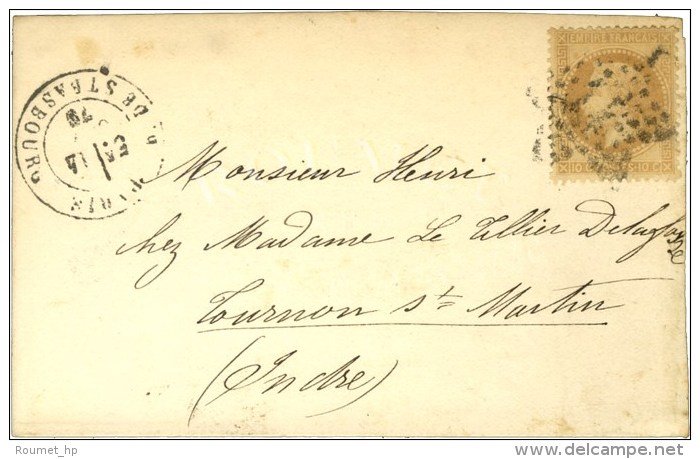 EMPIRE FRANÇAIS
10 C 10 C
PARIS
R. DE STRASBOURG
Monsieur Henri
chez Madame Le Tellier Delafosse
Tournon St Martin
(Indre)
Roumet_hp
delcampe.net